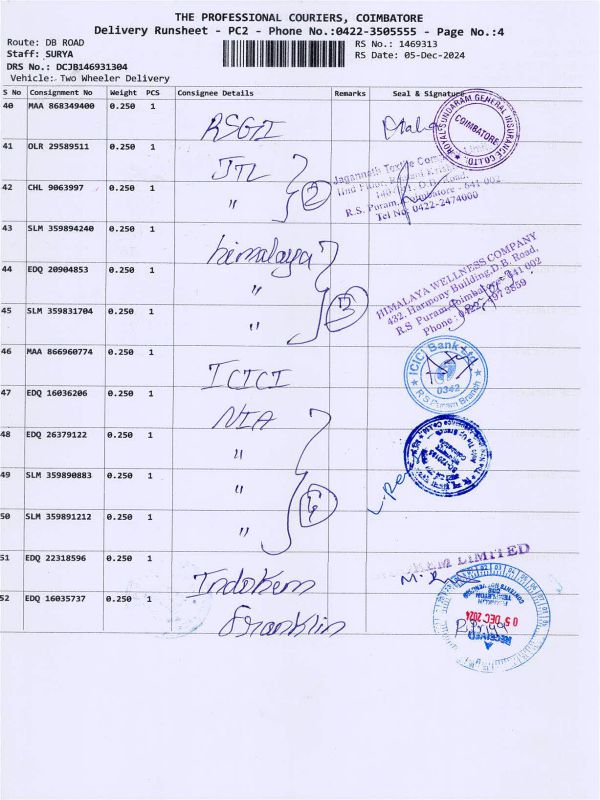 THE PROFESSIONAL COURIERS, COIMBATORE
Delivery Runsheet - PC2 - Phone No.:0422-3505555 - Page No.:4
Route: DB ROAD
RS No.: 1469313
Staff: SURYA
RS Date: 05-Dec-2024
DRS No.: DCJB146931304
Vehicle: Two Wheeler Delivery
S No Consignment No Weight PCS Consignee Details Remarks Seal & Signature
40 MAA 868349400 0.250 1 RSGI
ROYAL SUNDARAM GENERAL INSURANCE CO. LTD.
COIMBATORE
41 OLR 29589511 0.250 1 JTL
42 CHL 9063997 0.250 1 "
2
Jagannath Textile Company
R.S. Puram, Coimbatore - 641 002
Tel No: 0422-2474000
43 SLM 359894240 0.250 1 himalaya
44 EDQ 20904853 0.250 1 "
45 SLM 359831704 0.250 1 "
3
HIMALAYA WELLNESS COMPANY
432, Harmony Building, D.B. Road,
R.S. Puram, Coimbatore 641 002
Phone : 0422
46 MAA 866960774 0.250 1 ICICI
ICICI Bank Ltd
0342
R S Puram Branch
47 EDQ 16036206 0.250 1 NIA
48 EDQ 26379122 0.250 1 "
49 SLM 359890883 0.250 1 "
50 SLM 359891212 0.250 1 "
51 EDQ 22318596 0.250 1 Indokem
LIMITED
52 EDQ 16035737 0.250 1 Franklin
FRANKLIN
TEMPLETON
05 DEC 2024
RECEIVED